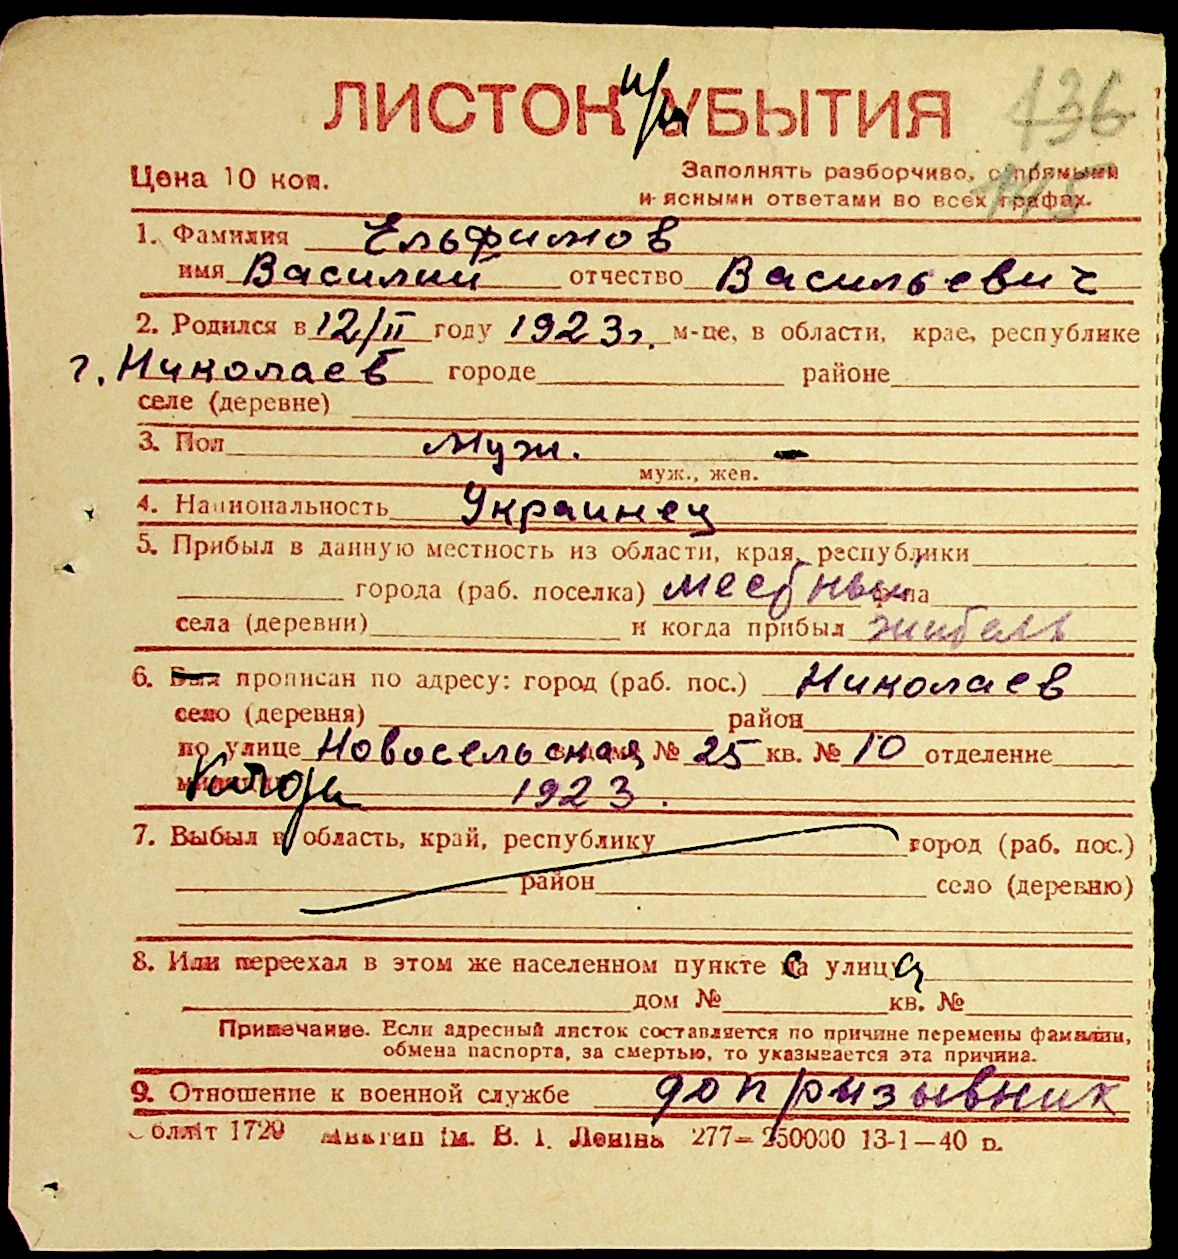 ЛИСТОК УБЫТИЯ
136
Цена 10 коп.
Заполнять разборчиво, с прямыми
и ясными ответами во всех графах.
1. Фамилия Ельфимов
имя Василий отчество Васильевич
2. Родился в 12/II году 1923г. м-це, в области, крае, республике
г. Николаев городе районе
селе (деревне)
3. Пол муж.
муж., жен.
4. Национальность Украинец
5. Прибыл в данную местность из области, края, республики
города (раб. поселка) местный
села (деревни) и когда прибыл житель
6. Был прописан по адресу: город (раб. пос.) Николаев
село (деревня) район
по улице Новосельская № 25 кв. № 10 отделение
1923.
7. Выбыл в область, край, республику город (раб. пос.)
район село (деревню)
8. Или переехал в этом же населенном пункте са улица
дом № кв. №
Примечание. Если адресный листок составляется по причине перемены фамилии,
обмена паспорта, за смертью, то указывается эта причина.
9. Отношение к военной службе допризывник
Облліт 1729 ім. В. І. Леніна 277—250000 13-1—40 р.